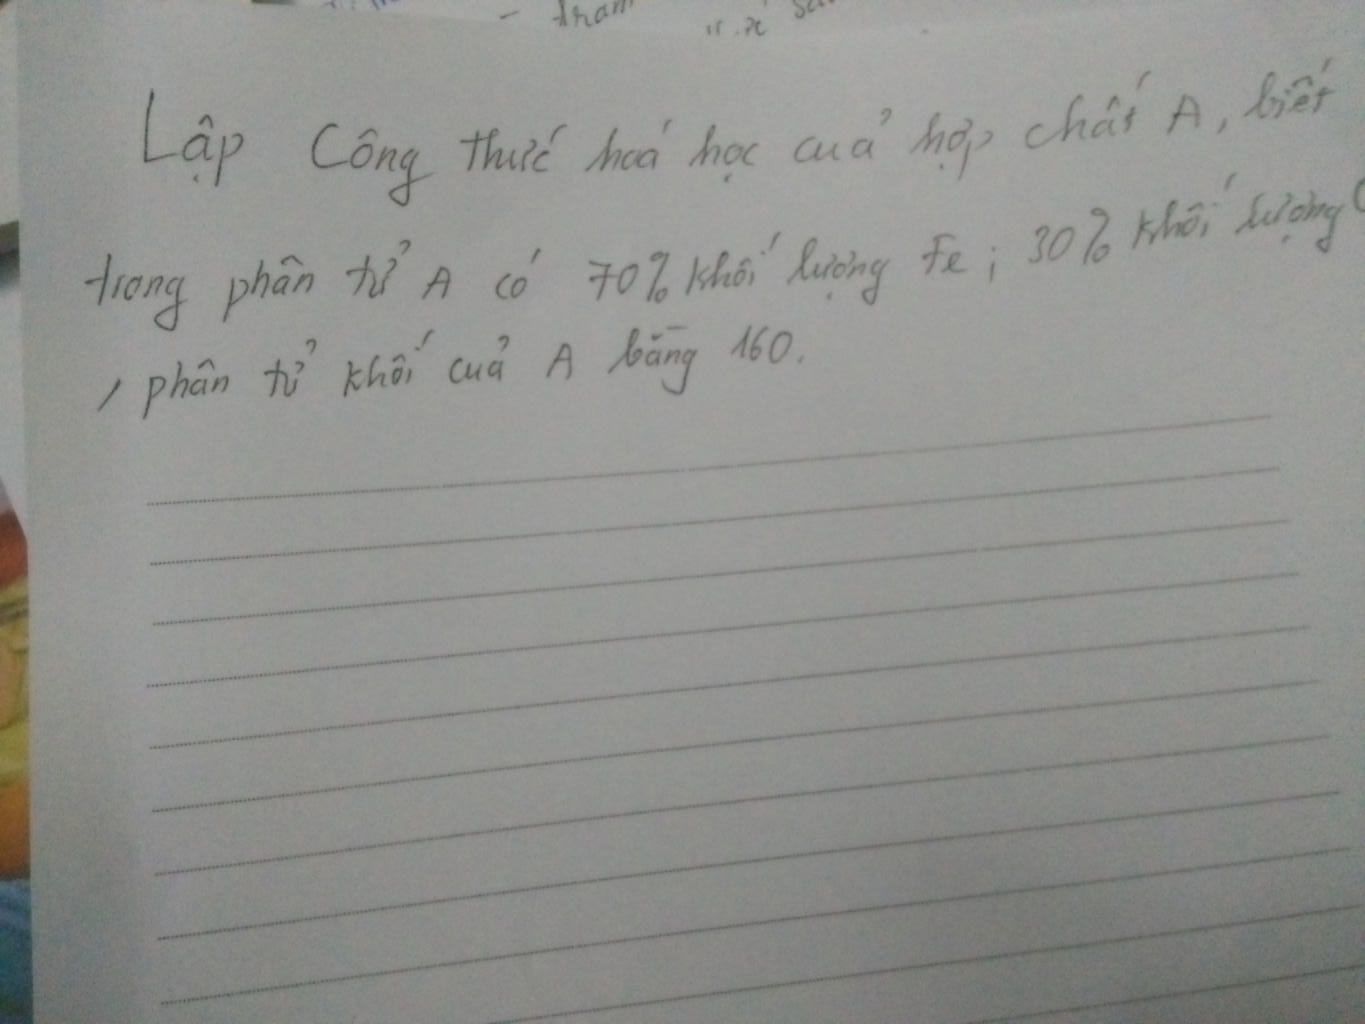 - tham
Lập Công thức hoá học cuả hợp chất A, biết
trong phân tử A có 70% khối lượng Fe; 30% khối lượng
, phân tử khối cuả A bằng 160.